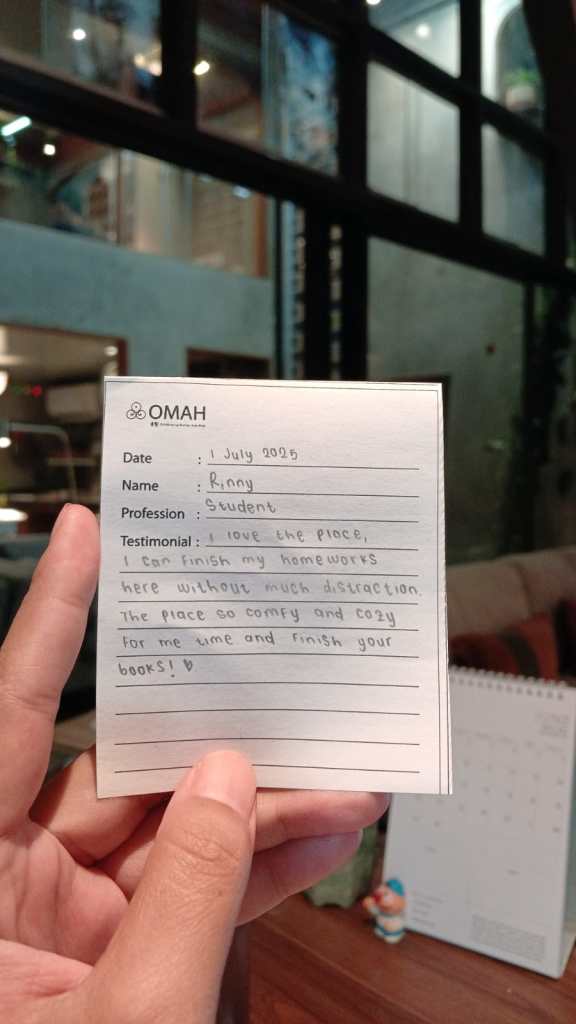 OMAH
Date : 1 July 2025
Name : Rinny
Profession : Student
Testimonial : I love the place,
I can finish my homeworks
here without much distraction.
The place so comfy and cozy
for me time and finish your
books! ♡